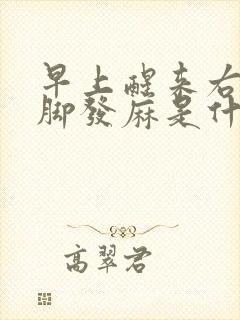 早上醒来右
脚發麻是什
高翠君